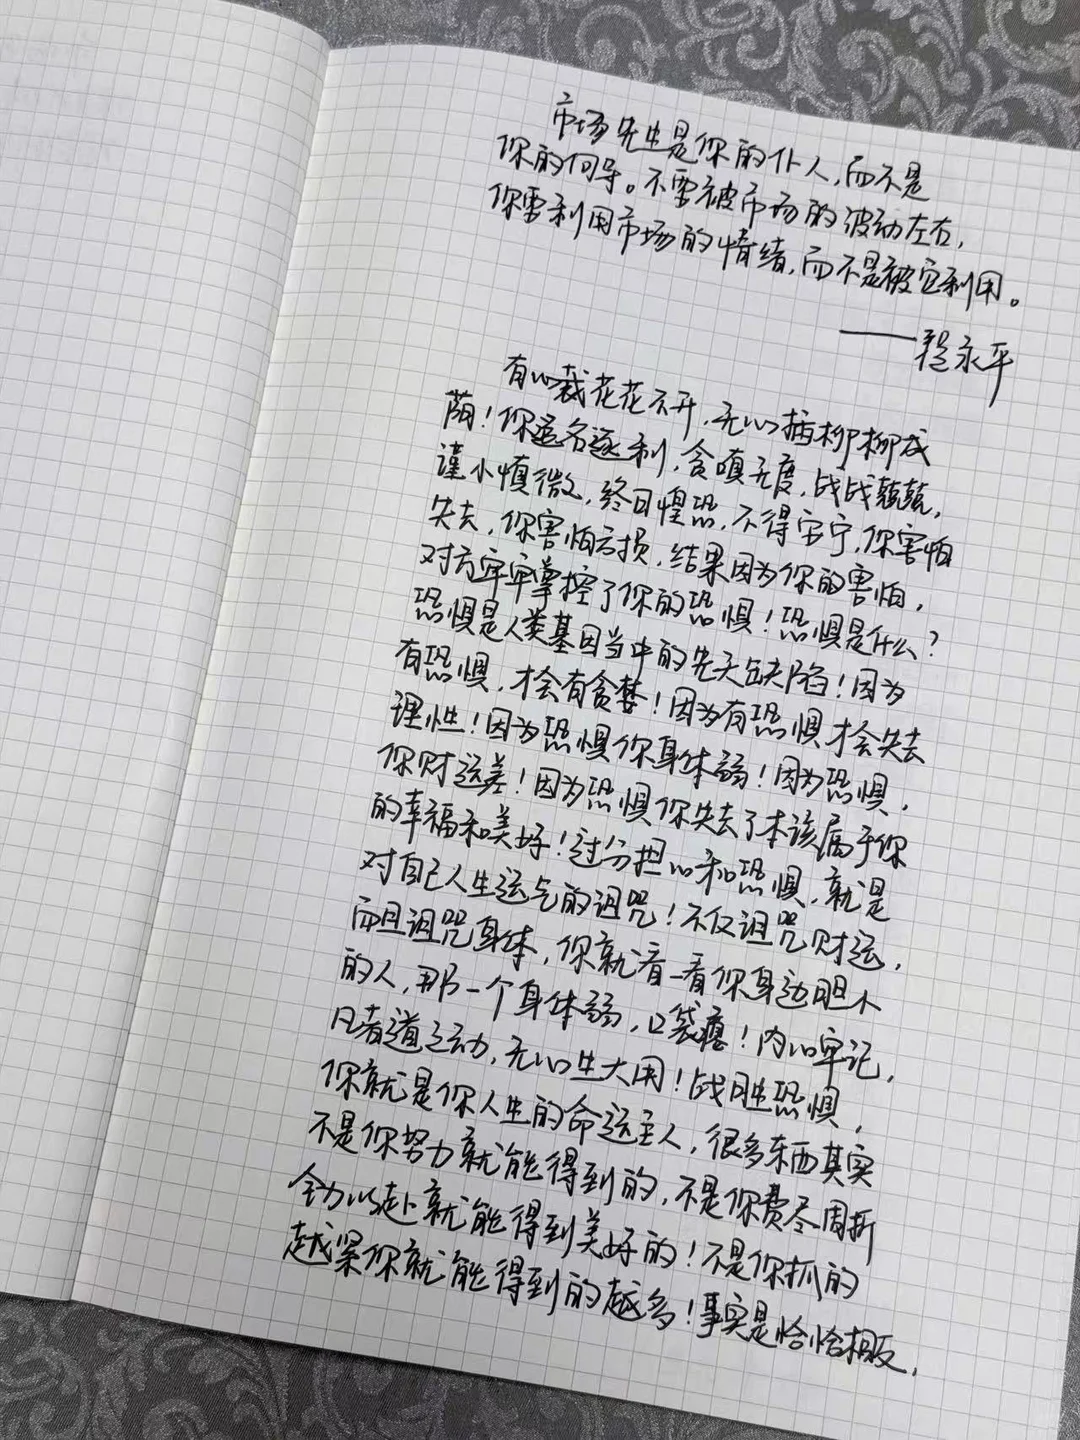 市场先生是你的仆人，而不是
你的向导。不要被市场的波动左右，
你要利用市场的情绪，而不是被它利用。
——程永平
有心栽花花不开，无心插柳柳成
荫！你追名逐利，贪嗔无度，战战兢兢，
谨小慎微，终日惶恐，不得安宁，你害怕
失去，你害怕亏损，结果因为你的害怕，
对方牢牢掌控了你的恐惧！恐惧是什么？
恐惧是人类基因当中的先天缺陷！因为
有恐惧，才会有贪婪！因为有恐惧才会失去
理性！因为恐惧你身体弱！因为恐惧，
你财运差！因为恐惧你失去了本该属于你
的幸福和美好！过分担心和恐惧，就是
对自己人生运气的诅咒！不仅诅咒财运，
而且诅咒身体，你就看一看你身边胆小
的人，那一个身体弱，口袋瘪！内心牢记，
凡者道之动，无心生大用！战胜恐惧，
你就是你人生的命运主人，很多东西其实
不是你努力就能得到的，不是你费尽周折
全力以赴就能得到美好的！不是你抓的
越紧你就能得到的越多！事实是恰恰相反，